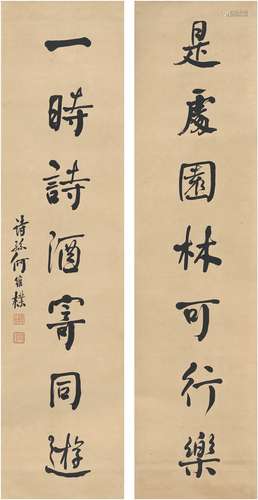 是處園林可行樂
一時詩酒寄同遊
詩孫何維樸